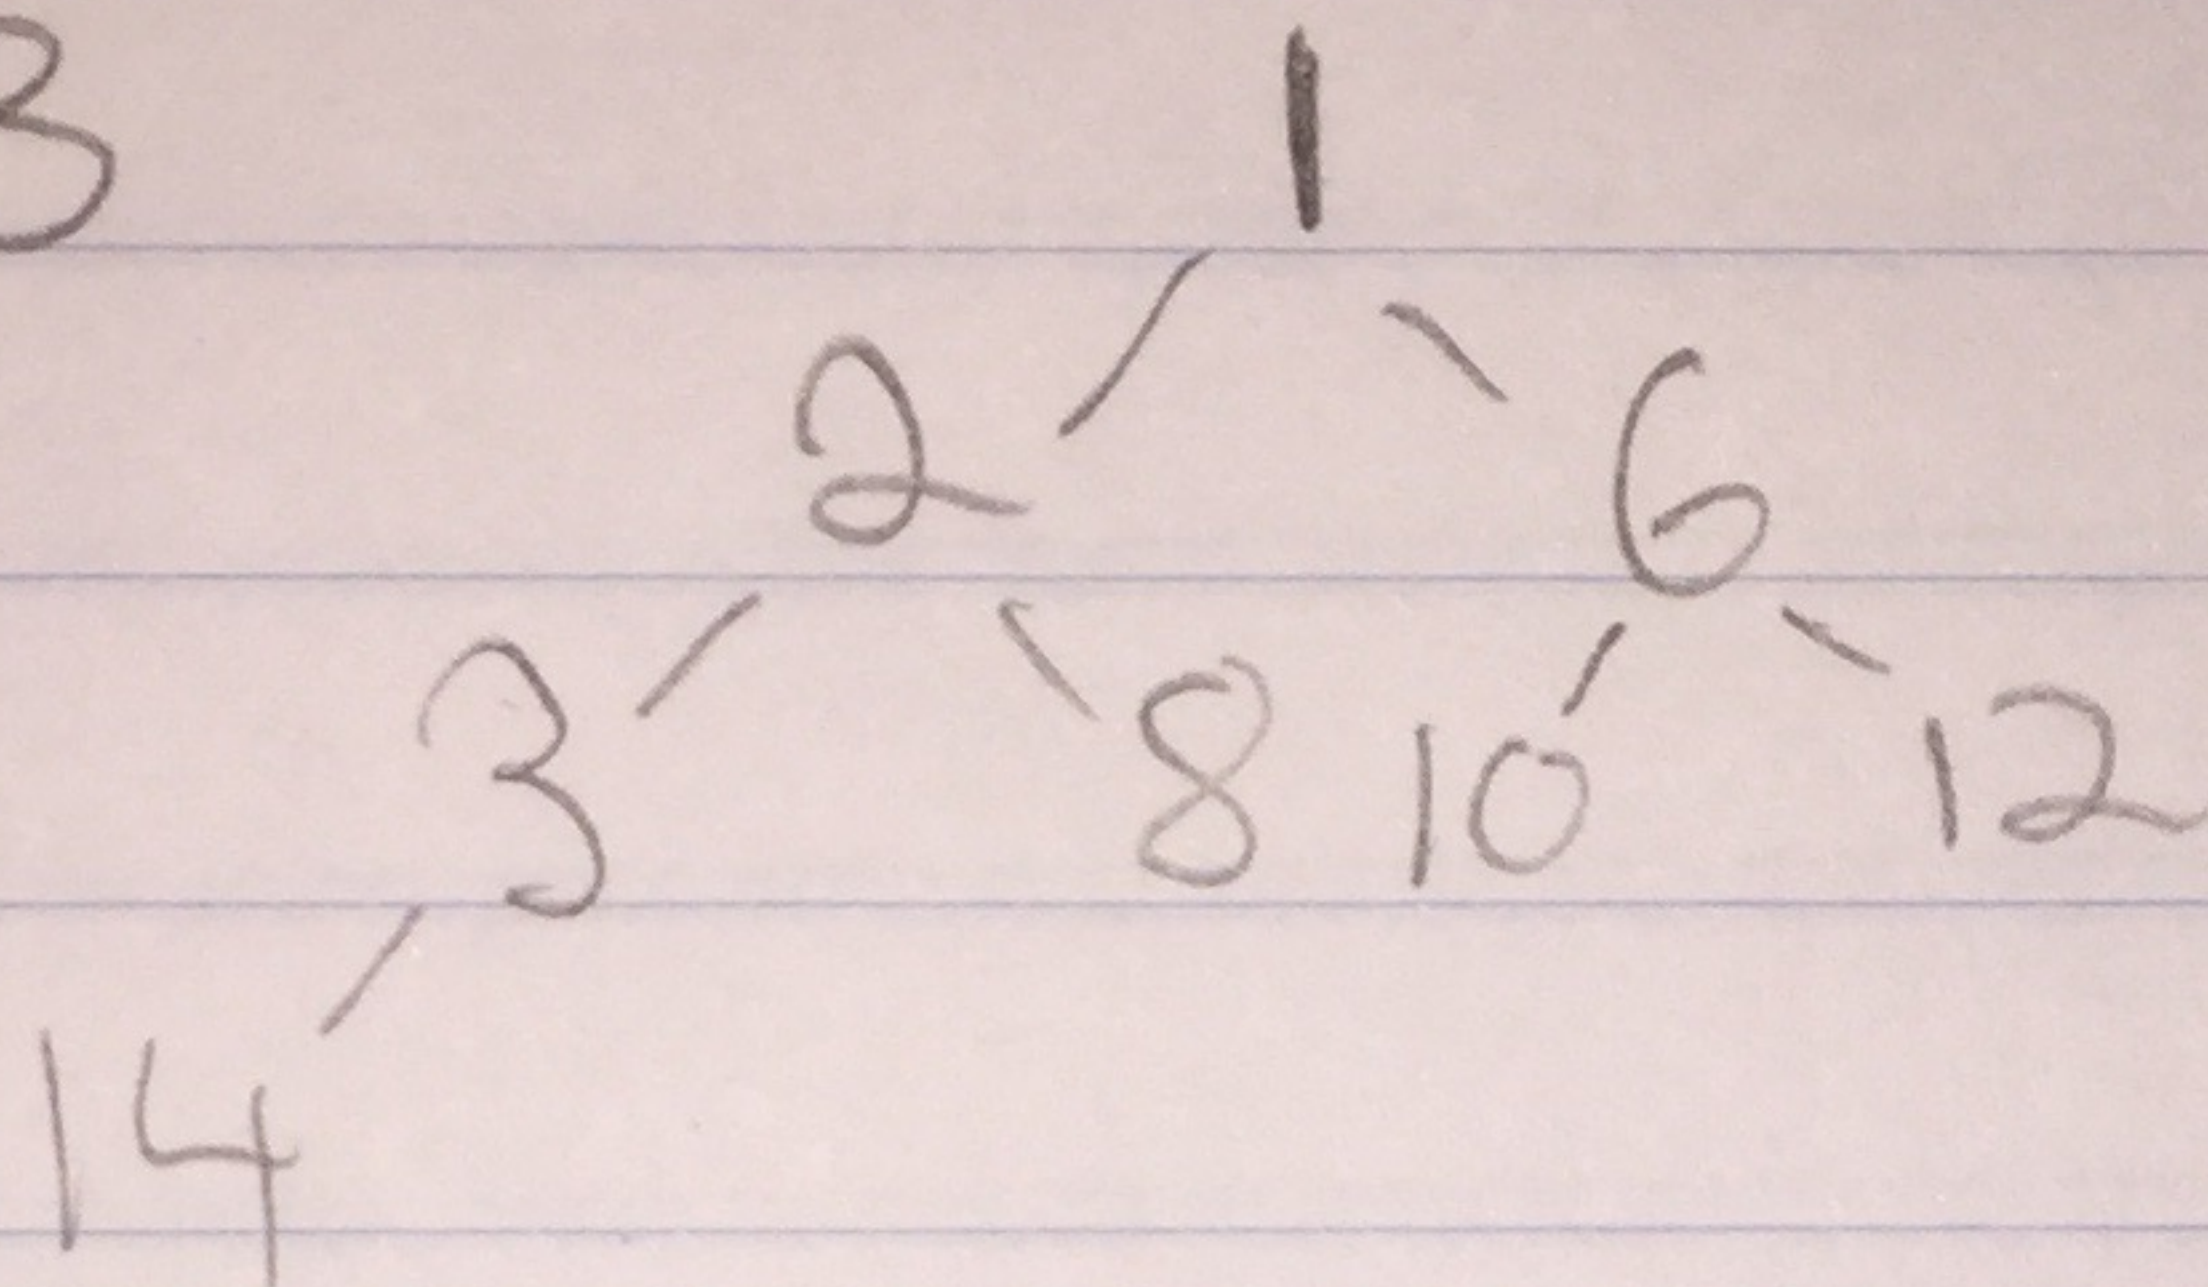 3 1
2 6
3 8 10 12
14